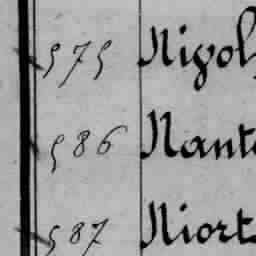 575 Nigol
586 Nante
587 Niort